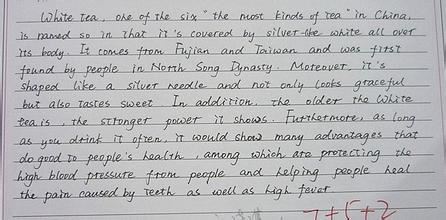 White tea, one of the six "the most kinds of tea" in China,
is named so in that it's covered by silver-like white all over
its body. It comes from Fujian and Taiwan and was first
found by people in North Song Dynasty. Moreover, it's
shaped like a silver needle and not only looks graceful
but also tastes sweet. In addition, the older the White
tea is, the stronger power it shows. Furthermore, as long
as you drink it often, it would show many advantages that
do good to people's health, among which are protecting the
high blood pressure from people and helping people heal
the pain caused by teeth as well as high fever
7+5+2